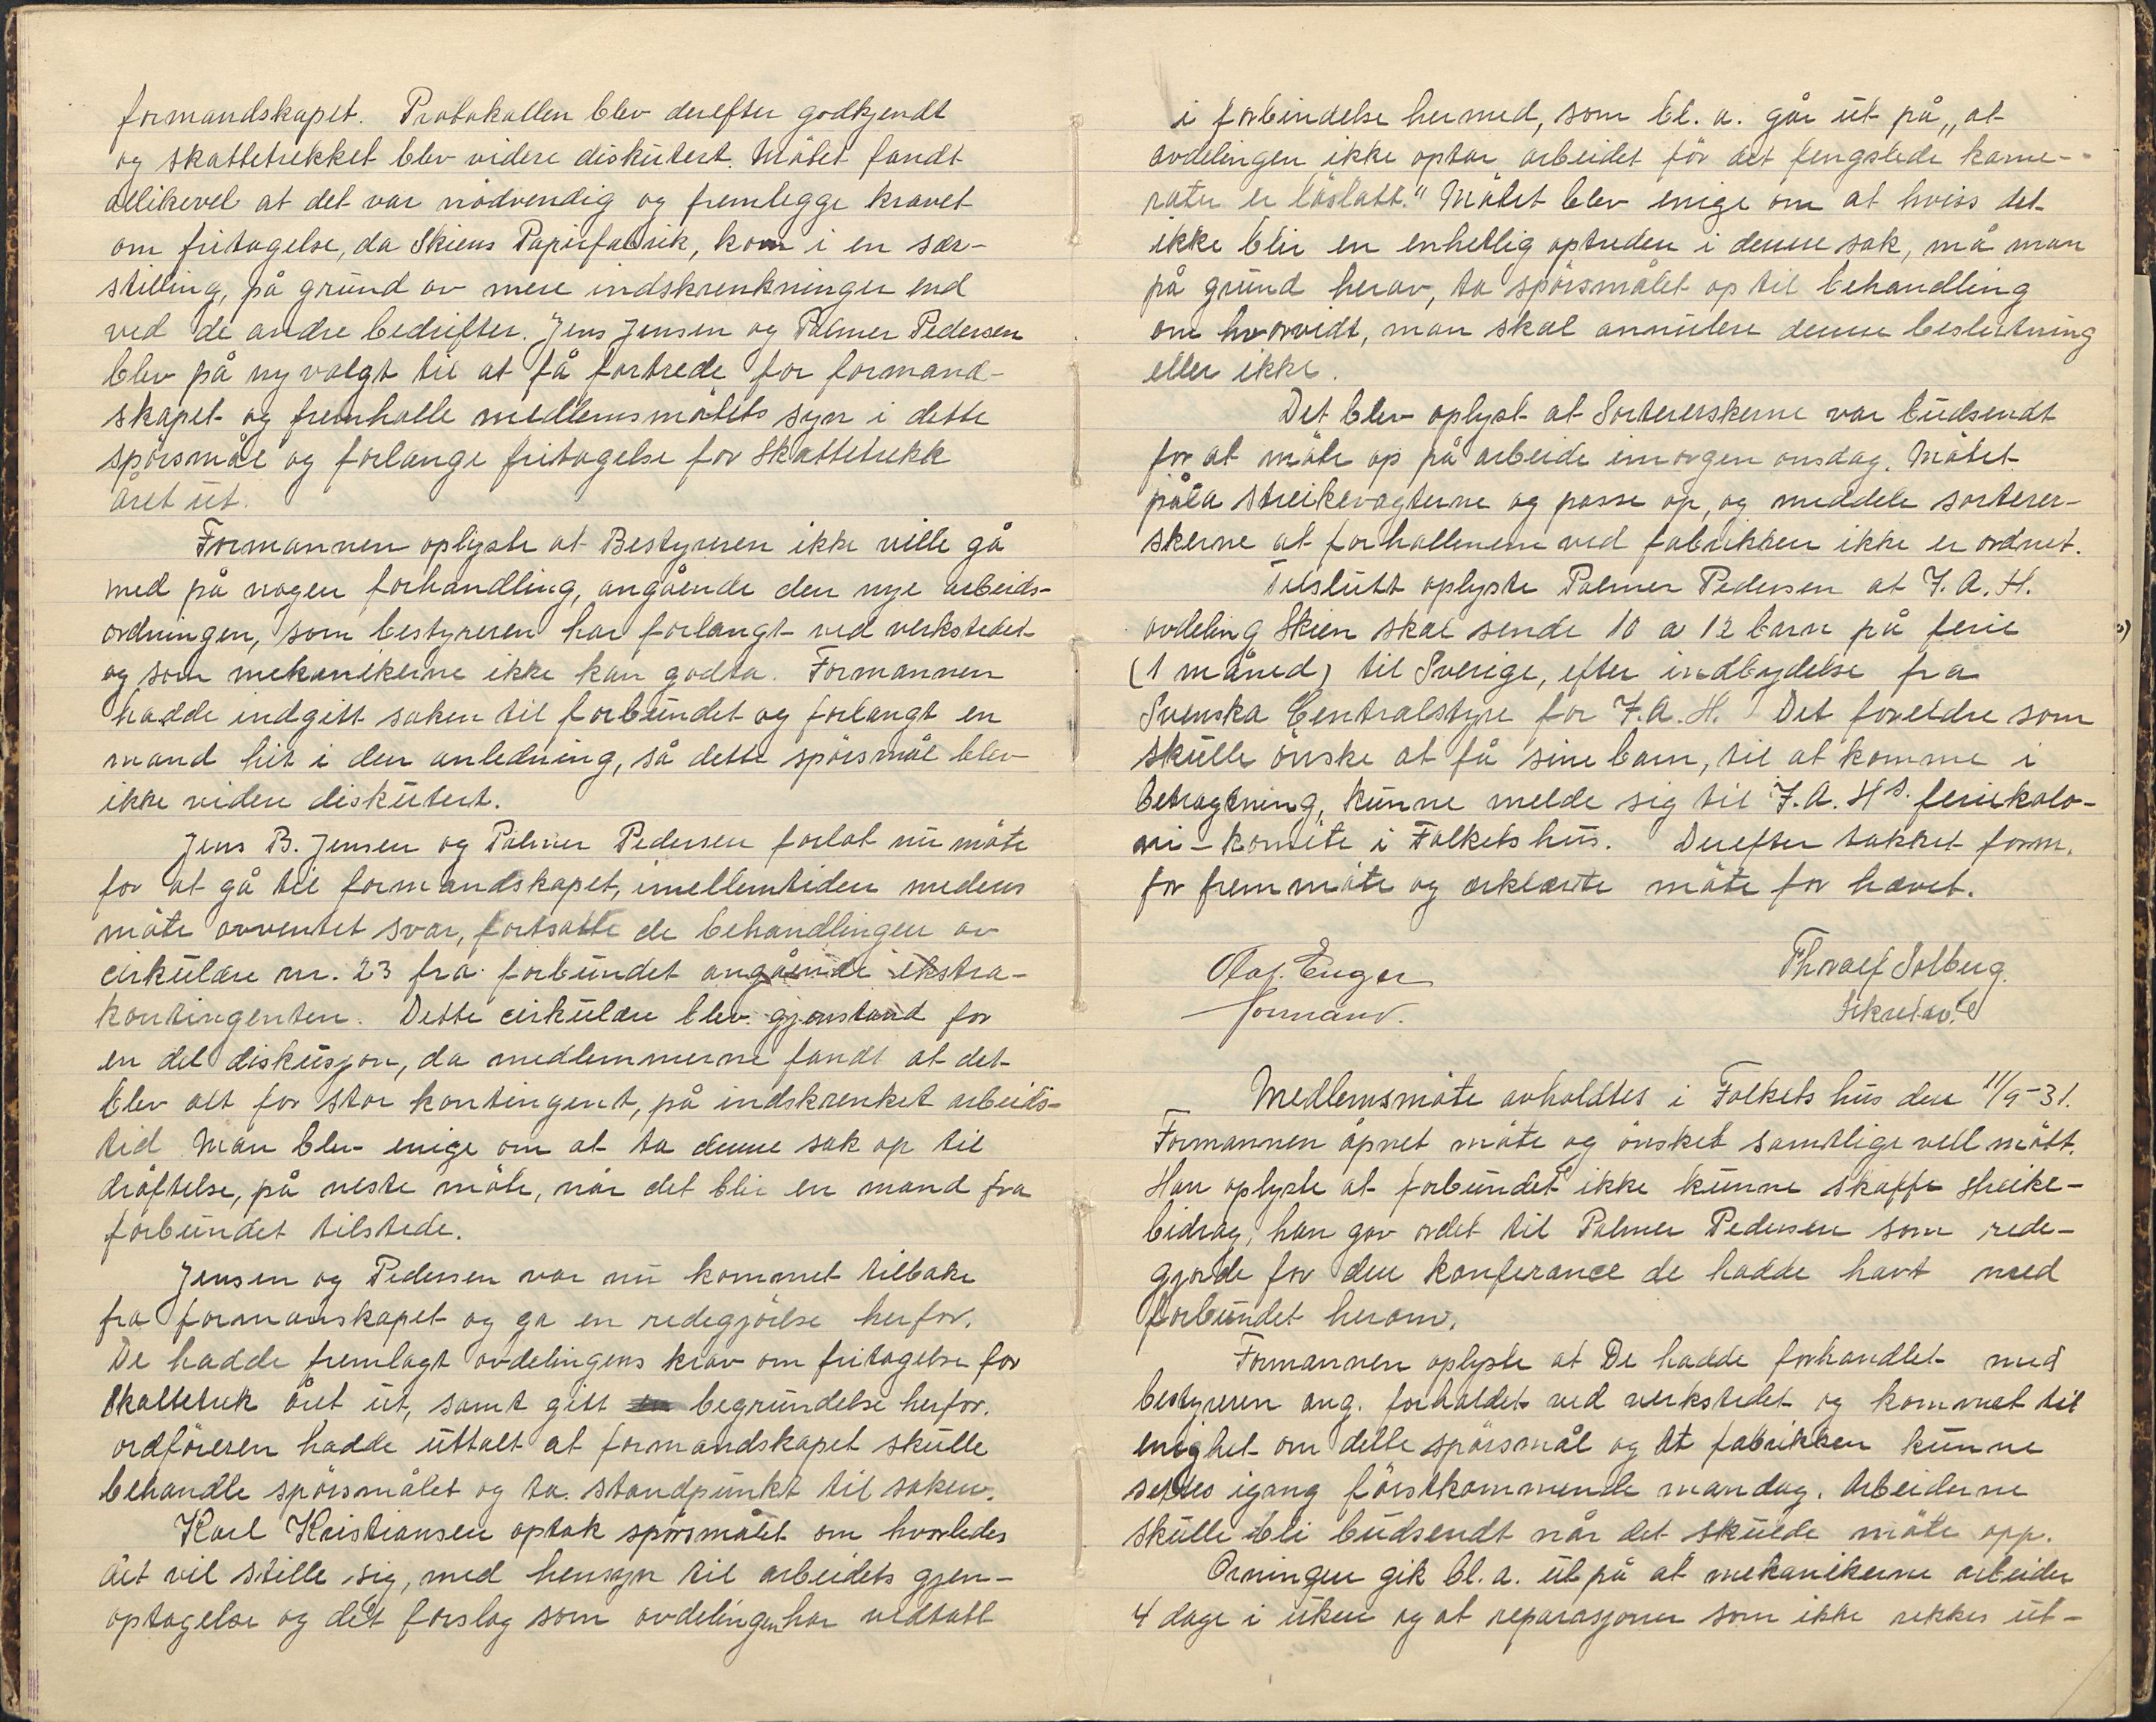 formandskapet. Protokollen blev derefter godkjendt
og skattetrekket blev videre diskutert. Mötet fandt
allikevel at det var nödvendig og fremlegge kravet
om fritagelse, da Skiens Papirfabrik, kom i en sær-
stilling, på grund av mere indskrenkninger end
ved de andre bedrifter. Jens Jensen og Palmer Pedersen
blev på ny valgt til at få fortrede for formand-
skapet og fremholle medlemsmötets syn i dette
spörsmål og forlange fritagelse for Skattetrekk
året ut.
Formannen oplyste at Bestyreren ikke ville gå
med på nogen forhandling, angående den nye arbeids-
ordningen, som bestyreren har forlangt ved verkstedet
og som mekanikerne ikke kan godta. Formannen
hadde indgitt saken til forbundet og forlangt en
mand hit i den anledning, så dette spörsmål blev
ikke videre diskutert.
Jens B. Jensen og Palmer Pedersen forlot nu möte
for at gå til formandskapet, imellemtiden medens
möte avventet svar, fortsatte de behandlingen av
cirkulære nr. 23 fra forbundet angående ekstra-
kontingenten. Dette cirkulære blev gjenstand for
en del diskusjon, da medlemmerne fandt at det
blev alt for stor kontingent, på indskrenket arbeids-
tid. Man blev enige om at ta denne sak op til
dröftelse, på neste möte, når det blir en mand fra
forbundet tilstede.
Jensen og Pedersen var nu kommet tilbake
fra formanskapet og ga en redegjörelse herfor.
De hadde fremlagt avdelingens krav om fritagelse for
Skattetrek året ut, samt gitt begrundelse herfor.
ordföreren hadde uttalt at formandskapet skulle
behandle spörsmålet og ta standpunkt til saken.
Karl Kristiansen optok spörsmålet om hvorledes
det vil stille sig, med hensyn til arbeidets gjen-
optagelse og det forslag som avdelingen har vedtatt
i forbindelse hermed, som bl. a. går ut på „at
avdelingen ikke optar arbeidet för det fengslede kame-
rater er löslatt." Mötet blev enige om at hviss det
ikke blir en enhetlig optreden i denne sak, må man
på grund herav, ta spörsmålet op til behandling
om hvorvidt, man skal annulere denne beslutning
eller ikke.
Det blev oplyst at Sortererskerne var budsendt
for at möte op på arbeide imorgen onsdag. Mötet
påla streikevagterne og passe op, og meddele sorterer-
skerne at forhollenene ved fabrikken ikke er ordnet.
Tilslutt oplyste Palmer Pedersen at I. A. H.
avdeling Skien skal sende 10 a 12 barn på ferie
(1 måned) til Sverige, efter indbydelse fra
Svenska Centralstyre for I. A. H. Det foreldre som
skulle önske at få sine barn, til at komme i
betragtning, kunne melde sig til I. A. Hs. feriekolo-
ni-komite i Folkets hus. Derefter takket form.
for fremmöte og erklærte möte for hævet.
Olaf. Enger Thoralf Solberg.
formand. Sekretær.
Medlemsmöte avholdtes i Folkets hus den 11/9-31.
Formannen åpnet möte og önsket samtlige vell mött.
Han oplyste at forbundet ikke kunne skaffe streike-
bidrag, han gav ordet til Palmer Pedersen som rede-
gjorde for den konferance de hadde havt med
forbundet herom.
Formannen oplyste at De hadde forhandlet med
bestyreren ang. forholdet ved verkstedet og kommet til
enighet om dette spörsmål og at fabrikken kunne
settes igang förstkommende mandag. Arbeiderne
skulle bli budsendt når det skulde möte opp.
Orningen gik bl. a. ut på at mekanikerne arbeider
4 dage i uken og at reparasjoner som ikke rekkes ut-